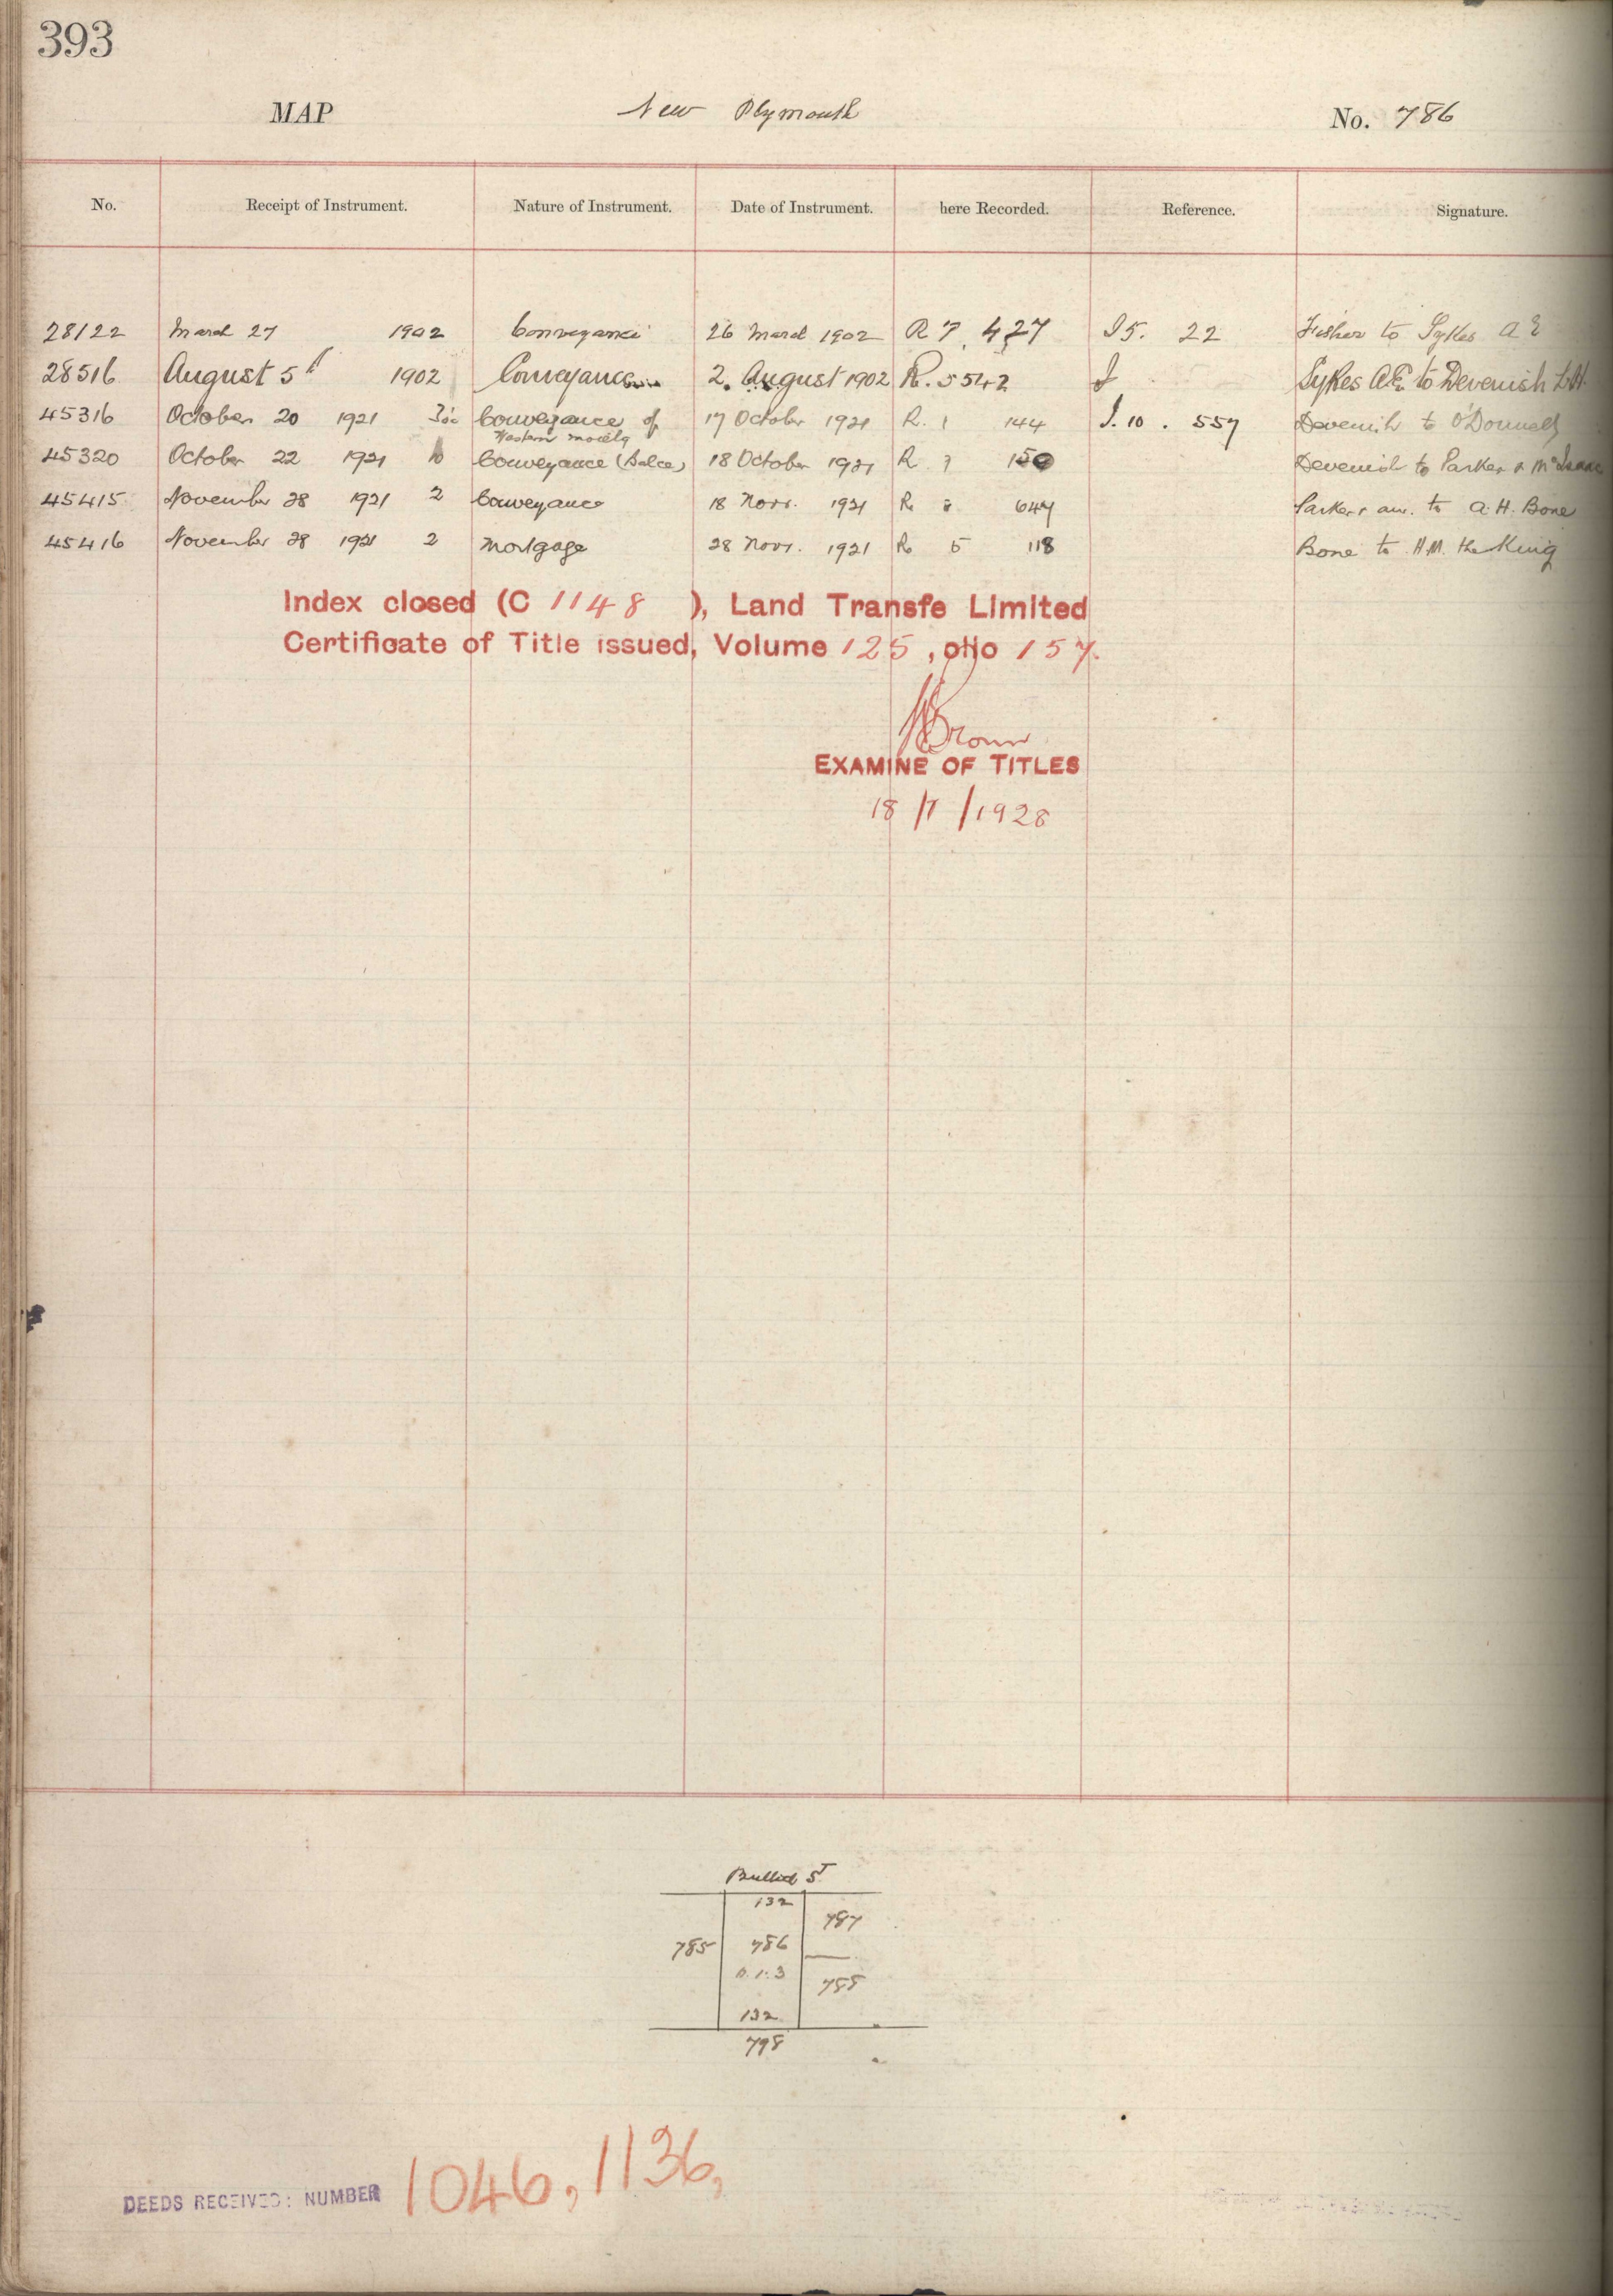 393
MAP New Plymouth No. 786
No. Receipt of Instrument. Nature of Instrument. Date of Instrument. here Recorded. Reference. Signature.
28122 March 27 1902 Conveyance 26 March 1902 R 7. 427 I 5. 22 Fisher to Sykes A E
28516 August 5th 1902 Conveyance 2. August 1902 R. 5542 Sykes A.E. to Devenish L.H.
45316 October 20 1921 Conveyance of 17 October 1921 R. 1 144 I. 10. 557 Devenish to O'Donnell
Western moiety
45320 October 22 1921 10 Conveyance (Balce) 18 October 1921 R 150 Devenish to Parker & McIsaac
45415 November 28 1921 2 Conveyance 18 Novr. 1921 R 647 Parker & anr. to A. H. Bone
45416 November 28 1921 2 Mortgage 28 Novr. 1921 R 5 118 Bone to H.M. the King
Index closed (C 1148 ), Land Transfe Limited
Certificate of Title issued, Volume 125, 157.
Brown
EXAMINE OF TITLES
18/7/1928
St
132
787
785 786
0.1.3
788
132
798
DEEDS RECEIVED: NUMBER 1046, 1136,